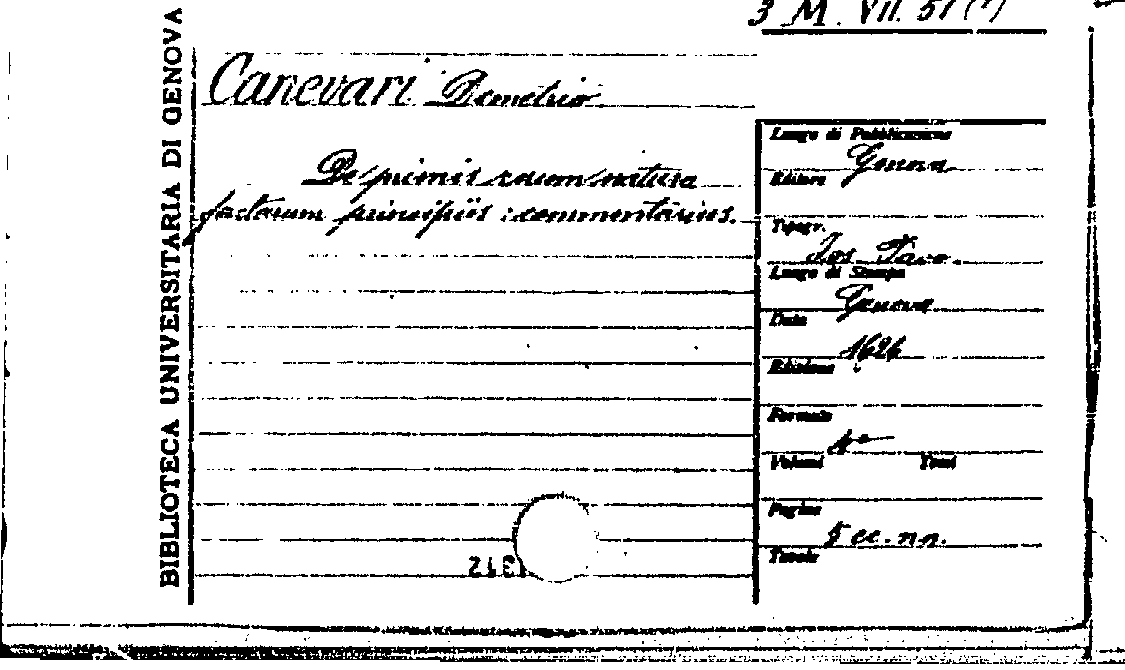 3 M. VII. 51 (1)
BIBLIOTECA UNIVERSITARIA DI GENOVA
Canevari Demetrio
De primis rerum natura
factarum principiis : commentarius.
Luogo di Pubblicazione
Genova
Editore
Tipogr.
Jos Pavo.
Luogo di Stampa
Genova
Data
1626
Edizione
Formato
4º
Volumi Tomi
Pagine
5 cc. nn.
Tavole